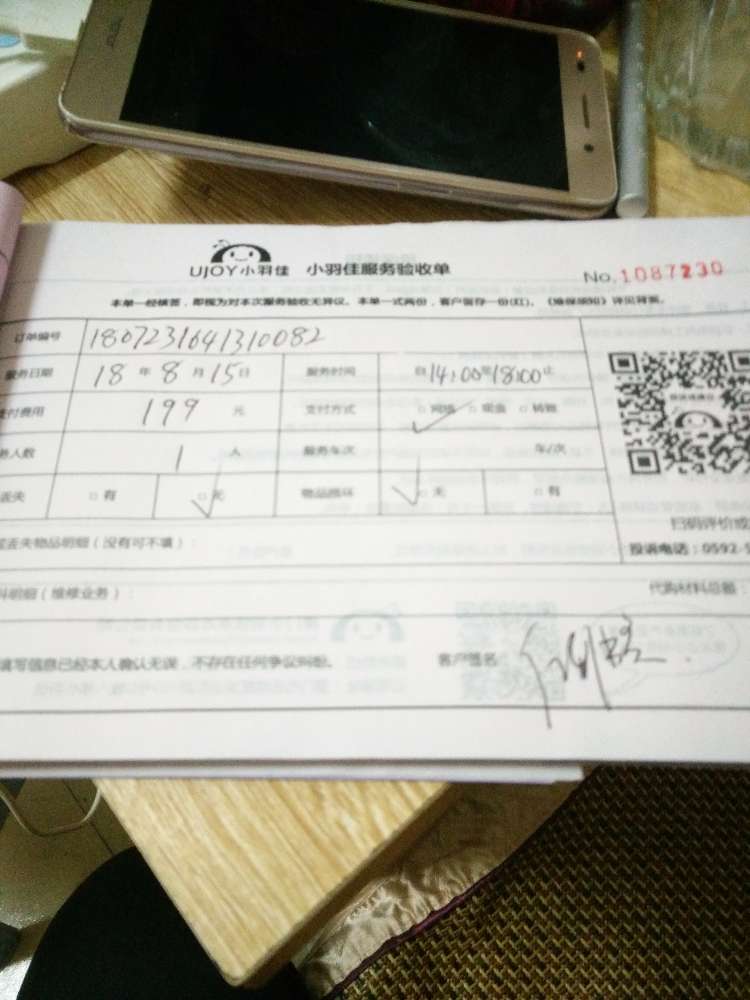 UJOY小羽佳 小羽佳服务验收单 No.1087230
本单一经填签，即视为对本次服务验收无异议。本单一式两份，客户留存一份(红)。《维保须知》详见背面。
订单编号 1807231641310082
服务日期 18年8月15日 服务时间 自14:00至18:00止
支付费用 199元 支付方式 □网络 □现金 □转账
务人数 1人 服务车次 车/次
丢失 □有 □无 物品损坏 □无 □有
丢失物品明细（没有可不填）：
扫码评价或
投诉电话：0592-
料明细（维修业务）： 代购材料总额：
填写信息已经本人确认无误，不存在任何争议纠纷。 客户签名